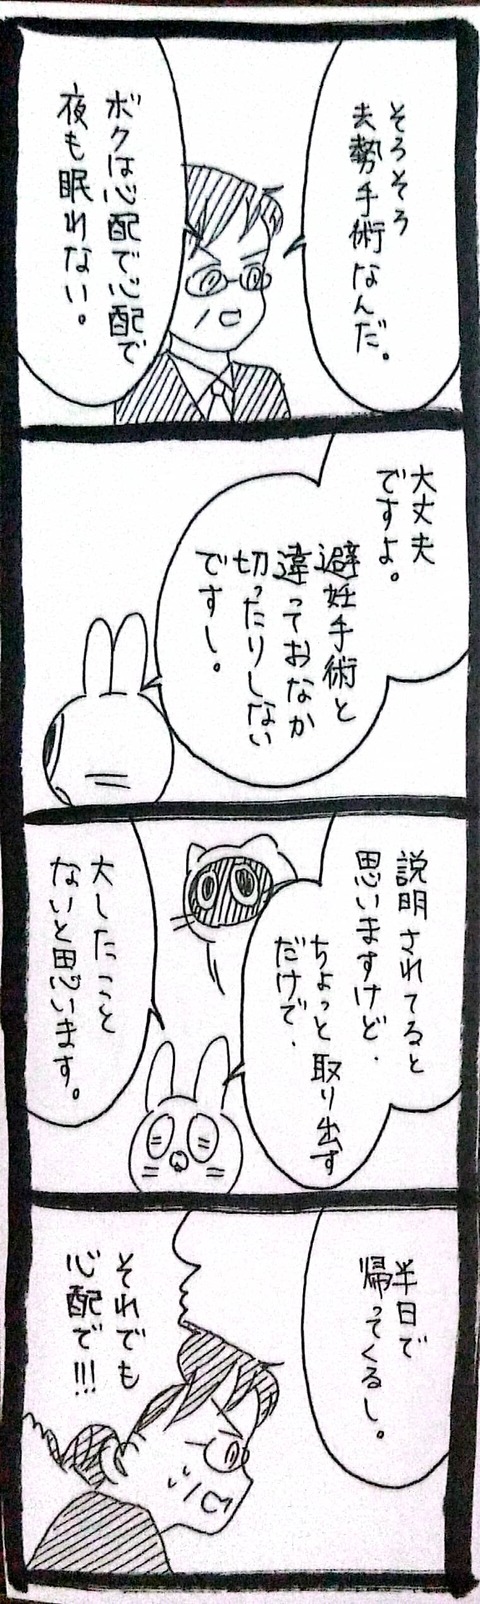 そろそろ
去勢手術なんだ。
ボクは心配で心配で
夜も眠れない。
大丈夫
ですよ。
避妊手術と
違っておなか
切ったりしない
ですし。
説明されてると
思いますけど、
ちょっと取り出す
だけで、
大したこと
ないと思います。
半日で
帰ってくるし。
それでも
心配で!!!